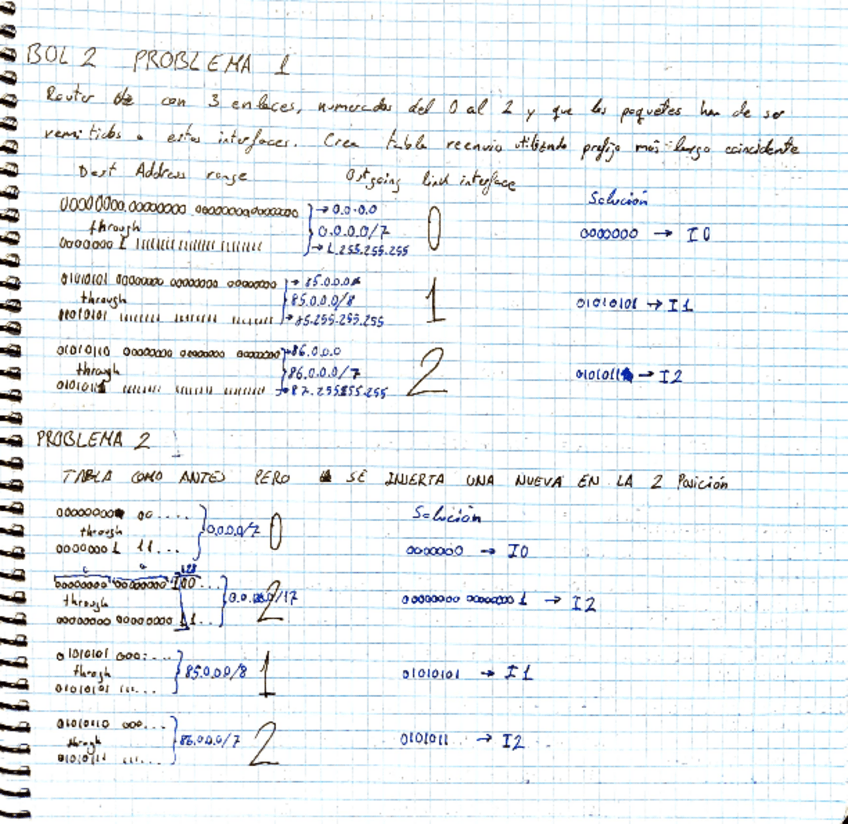 BOL 2 PROBLEMA 1
Router de con 3 enlaces, numerados del 0 al 2 y que los paquetes han de ser
remitidos a estas interfaces. Crea tabla reenvio utilizando prefijo más largo coincidente
Dest Address range Outgoing link interface
Solución
00000000 00000000 00000000 00000000 → 0.0.0.0
through 0.0.0.0/7 0 0000000 → I0
0000000 1 11111111 11111111 11111111 → 1.255.255.255
01010101 00000000 00000000 00000000 → 85.0.0.0
through 85.0.0.0/8 1 01010101 → I1
01010101 11111111 11111111 11111111 → 85.255.255.255
01010110 00000000 00000000 00000000 → 86.0.0
through 86.0.0.0/7 2 0101011 → I2
01010111 11111111 11111111 11111111 → 87.255.255.255
PROBLEMA 2
TABLA COMO ANTES PERO SE INSERTA UNA NUEVA EN LA 2 Posición
Solución
00000000 00....
through 0.0.0.0/7 0
0000000 1 11... 0000000 → I0
0 0 128
00000000 00000000 100...
through /17 2 00000000 00000000 1 → I2
00000000 00000000 11..
01010101 000:...
through 85.0.0.0/8 1 01010101 → I1
01010101 111...
01010110 000...
through 86.0.0.0/7 2 0101011 → I2
01010111 111...